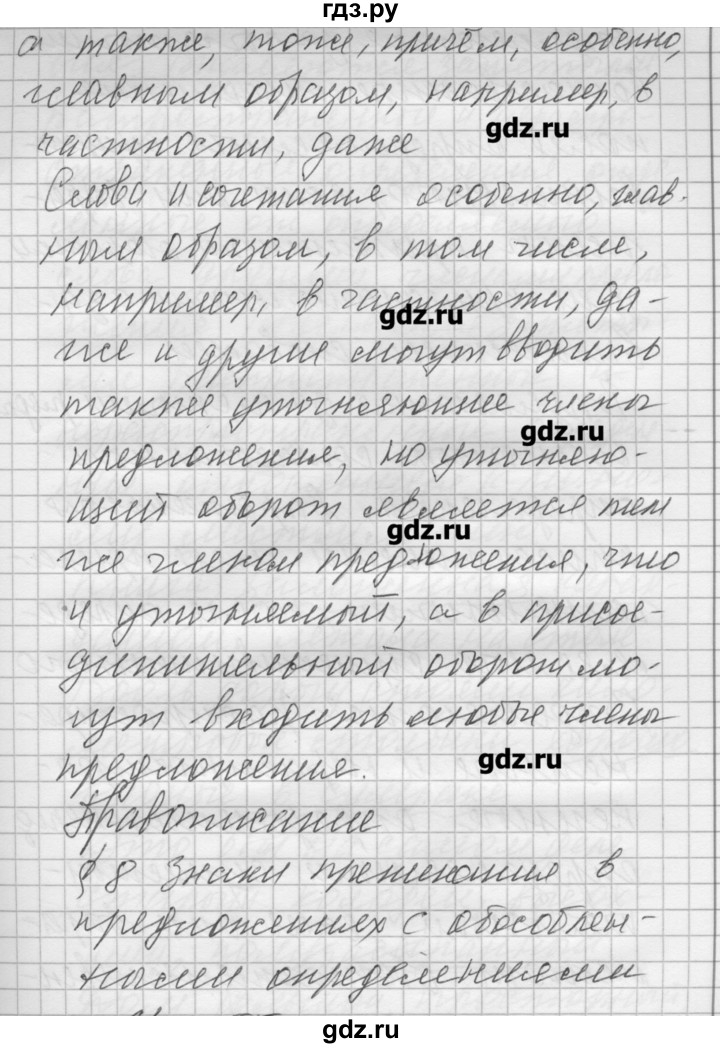 гдз.ру
а также, тоже, причём, особенно,
главным образом, например, в
частности, даже
gdz.ru
Слова и сочетания особенно, глав-
ным образом, в том числе,
например, в частности, да-
gdz.ru
же и другие могут вводить
также уточняющие члены
gdz.ru
предложения, но уточняю-
щий оборот является тем
gdz.ru
же членом предложения, что
и уточняемый, а в присое-
динительный оборот мо-
гут входить любые члены
gdz.ru
предложения.
Правописание
§ 8 Знаки препинания в
предложениях с обособлен-
ными определениями
gdz.ru